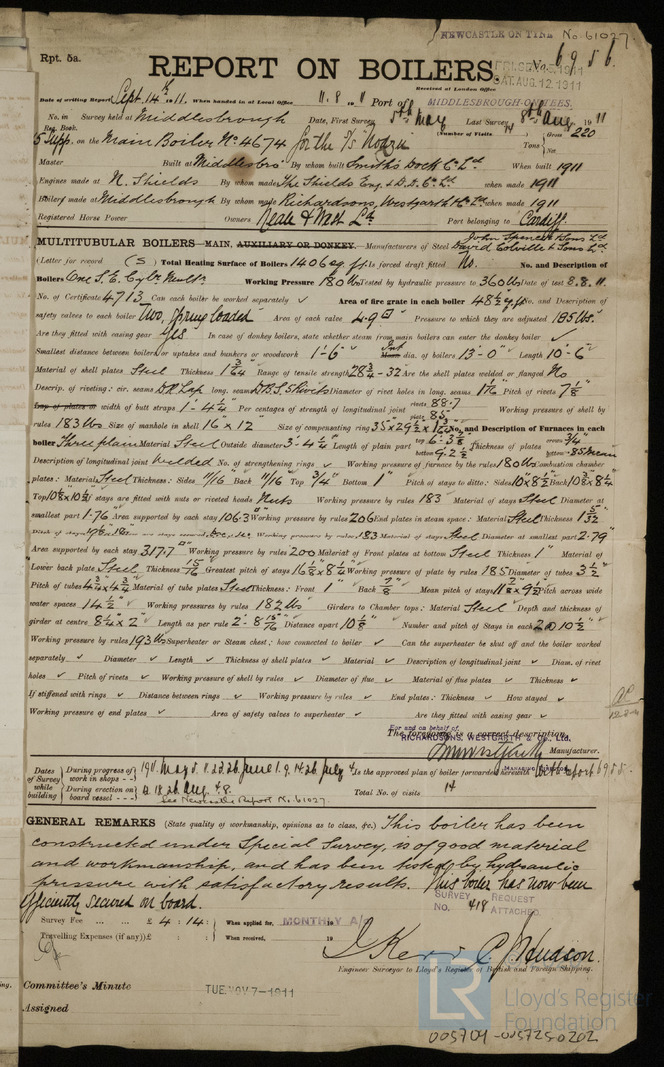 NEWCASTLE ON TYNE No. 61027.
Rpt. 5a.
REPORT ON BOILERS.
No. 6956.
Received at London Office
SAT. AUG. 12. 1911
Date of writing Report Sept. 14th 1911. When handed in at Local Office 11.8.1911 Port of MIDDLESBROUGH-ON-TEES.
No. in Reg. Book. Survey held at Middlesbrough Date, First Survey 5th May Last Survey 8th Aug 1911
(Number of Visits 14)
5 Supp. on the Main Boiler No. 4674 for the S/S Tons Gross 220 Net
Master Built at Middlesbro' By whom built Smith's Dock Co. Ld. When built 1911
Engines made at N. Shields By whom made The Shields Eng. & D.D. Co. Ld. when made 1911
Boilers made at Middlesbrough By whom made Richardsons, Westgarth & Co. Ld. when made 1911
Registered Horse Power Owners Neale & West Ld. Port belonging to Cardiff.
MULTITUBULAR BOILERS—MAIN, AUXILIARY OR DONKEY.—Manufacturers of Steel John Spencer & Sons Ld. David Colville & Sons Ld.
(Letter for record (S) Total Heating Surface of Boilers 1406 sq. ft. Is forced draft fitted No. No. and Description of
Boilers One S.E. Cylr. Mult. Working Pressure 180 lbs Tested by hydraulic pressure to 360 lbs Date of test 8.8.11.
No. of Certificate 4713 Can each boiler be worked separately ✓ Area of fire grate in each boiler 48½ sq. ft. No. and Description of
safety valves to each boiler Two, Spring loaded Area of each valve 4.9 □" Pressure to which they are adjusted 185 lbs.
Are they fitted with easing gear Yes In case of donkey boilers, state whether steam from main boilers can enter the donkey boiler ✓
Smallest distance between boilers or uptakes and bunkers or woodwork 1'-6" dia. of boilers 13'-0" Length 10'-6"
Material of shell plates Steel Thickness 1 3/64 Range of tensile strength 28¾-32 Are the shell plates welded or flanged No
Descrip. of riveting: cir. seams D.R. Lap long. seams D.B.S. 5 Rivets Diameter of rivet holes in long. seams 1 1/16" Pitch of rivets 7 1/8"
Lap of plates or width of butt straps 1'-4¼" Per centages of strength of longitudinal joint rivets 88.7 plate 85. Working pressure of shell by
rules 183 lbs Size of manhole in shell 16" x 12" Size of compensating ring 35 x 29½ x No. and Description of Furnaces in each
boiler Three plain Material Steel Outside diameter 3'-4¼" Length of plain part top 6'-3 bottom 9'-2½ Thickness of plates crown ¾" bottom .85 mean
Description of longitudinal joint Welded No. of strengthening rings ✓ Working pressure of furnace by the rules 180 lbs Combustion chamber
plates: Material Steel Thickness: Sides 11/16 Back 11/16 Top ¾" Bottom 1" Pitch of stays to ditto: Sides 10 x 8½ Back
Top If stays are fitted with nuts or riveted heads Nuts Working pressure by rules 183 Material of stays Steel Diameter at
smallest part 1.76 Area supported by each stay 106.3 □" Working pressure by rules 206 End plates in steam space: Material Steel Thickness 1 5/32
Working pressure by rules 183 Material of stays Steel Diameter at smallest part 2.79"
Area supported by each stay 317.7 □" Working pressure by rules 200 Material of Front plates at bottom Steel Thickness 1" Material of
Lower back plate Steel Thickness 15/16 Greatest pitch of stays 16½" x 8¼ Working pressure of plate by rules 185 Diameter of tubes 3½"
Pitch of tubes 4¾ x 4¾ Material of tube plates Steel Thickness: Front 1" Back 7/8" Mean pitch of stays Pitch across wide
water spaces 14½" Working pressures by rules 182 lbs Girders to Chamber tops: Material Steel Depth and thickness of
girder at centre 8¼ x 2" Length as per rule 2'-8 15/16 Distance apart 10½" Number and pitch of Stays in each 2 @ 10½"
Working pressure by rules 193 lbs Superheater or Steam chest; how connected to boiler ✓ Can the superheater be shut off and the boiler worked
separately ✓ Diameter ✓ Length ✓ Thickness of shell plates ✓ Material ✓ Description of longitudinal joint ✓ Diam. of rivet
holes ✓ Pitch of rivets ✓ Working pressure of shell by rules ✓ Diameter of flue ✓ Material of flue plates ✓ Thickness ✓
If stiffened with rings ✓ Distance between rings ✓ Working pressure by rules ✓ End plates: Thickness ✓ How stayed ✓
Working pressure of end plates ✓ Area of safety valves to superheater ✓ Are they fitted with easing gear ✓
For and on behalf of
The foregoing is a correct description,
RICHARDSONS, WESTGARTH & Co., Ltd.
Manufacturer.
MANAGING DIRECTOR
Dates of Survey while building During progress of work in shops - - 1911. May 5. 8. 23. 26. June 1. 9. 14. 26. July 4. Is the approved plan of boiler forwarded herewith
During erection on board vessel - - - 12. 18. 26. Aug. 4. 8. Total No. of visits 14
See Newcastle Report No. 61027.
GENERAL REMARKS (State quality of workmanship, opinions as to class, &c.) This boiler has been
constructed under Special Survey, is of good material
and workmanship, and has been tested by hydraulic
pressure with satisfactory results. This boiler has now been
efficiently secured on board.
SURVEY REQUEST
No. 418 ATTACHED.
Survey Fee ... ... £ 4 : 14 : When applied for, MONTHLY A/c 19
Travelling Expenses (if any) £ : : When received, 19
J. Kerr & C. J. Hudson.
Engineer Surveyor to Lloyd's Register of British and Foreign Shipping.
Committee's Minute TUE. NOV. 7-1911
Assigned
LR Lloyd's Register Foundation
005704-005725-0202